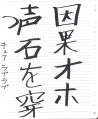 因果オホ
声石を穿
キュア ラブラブ